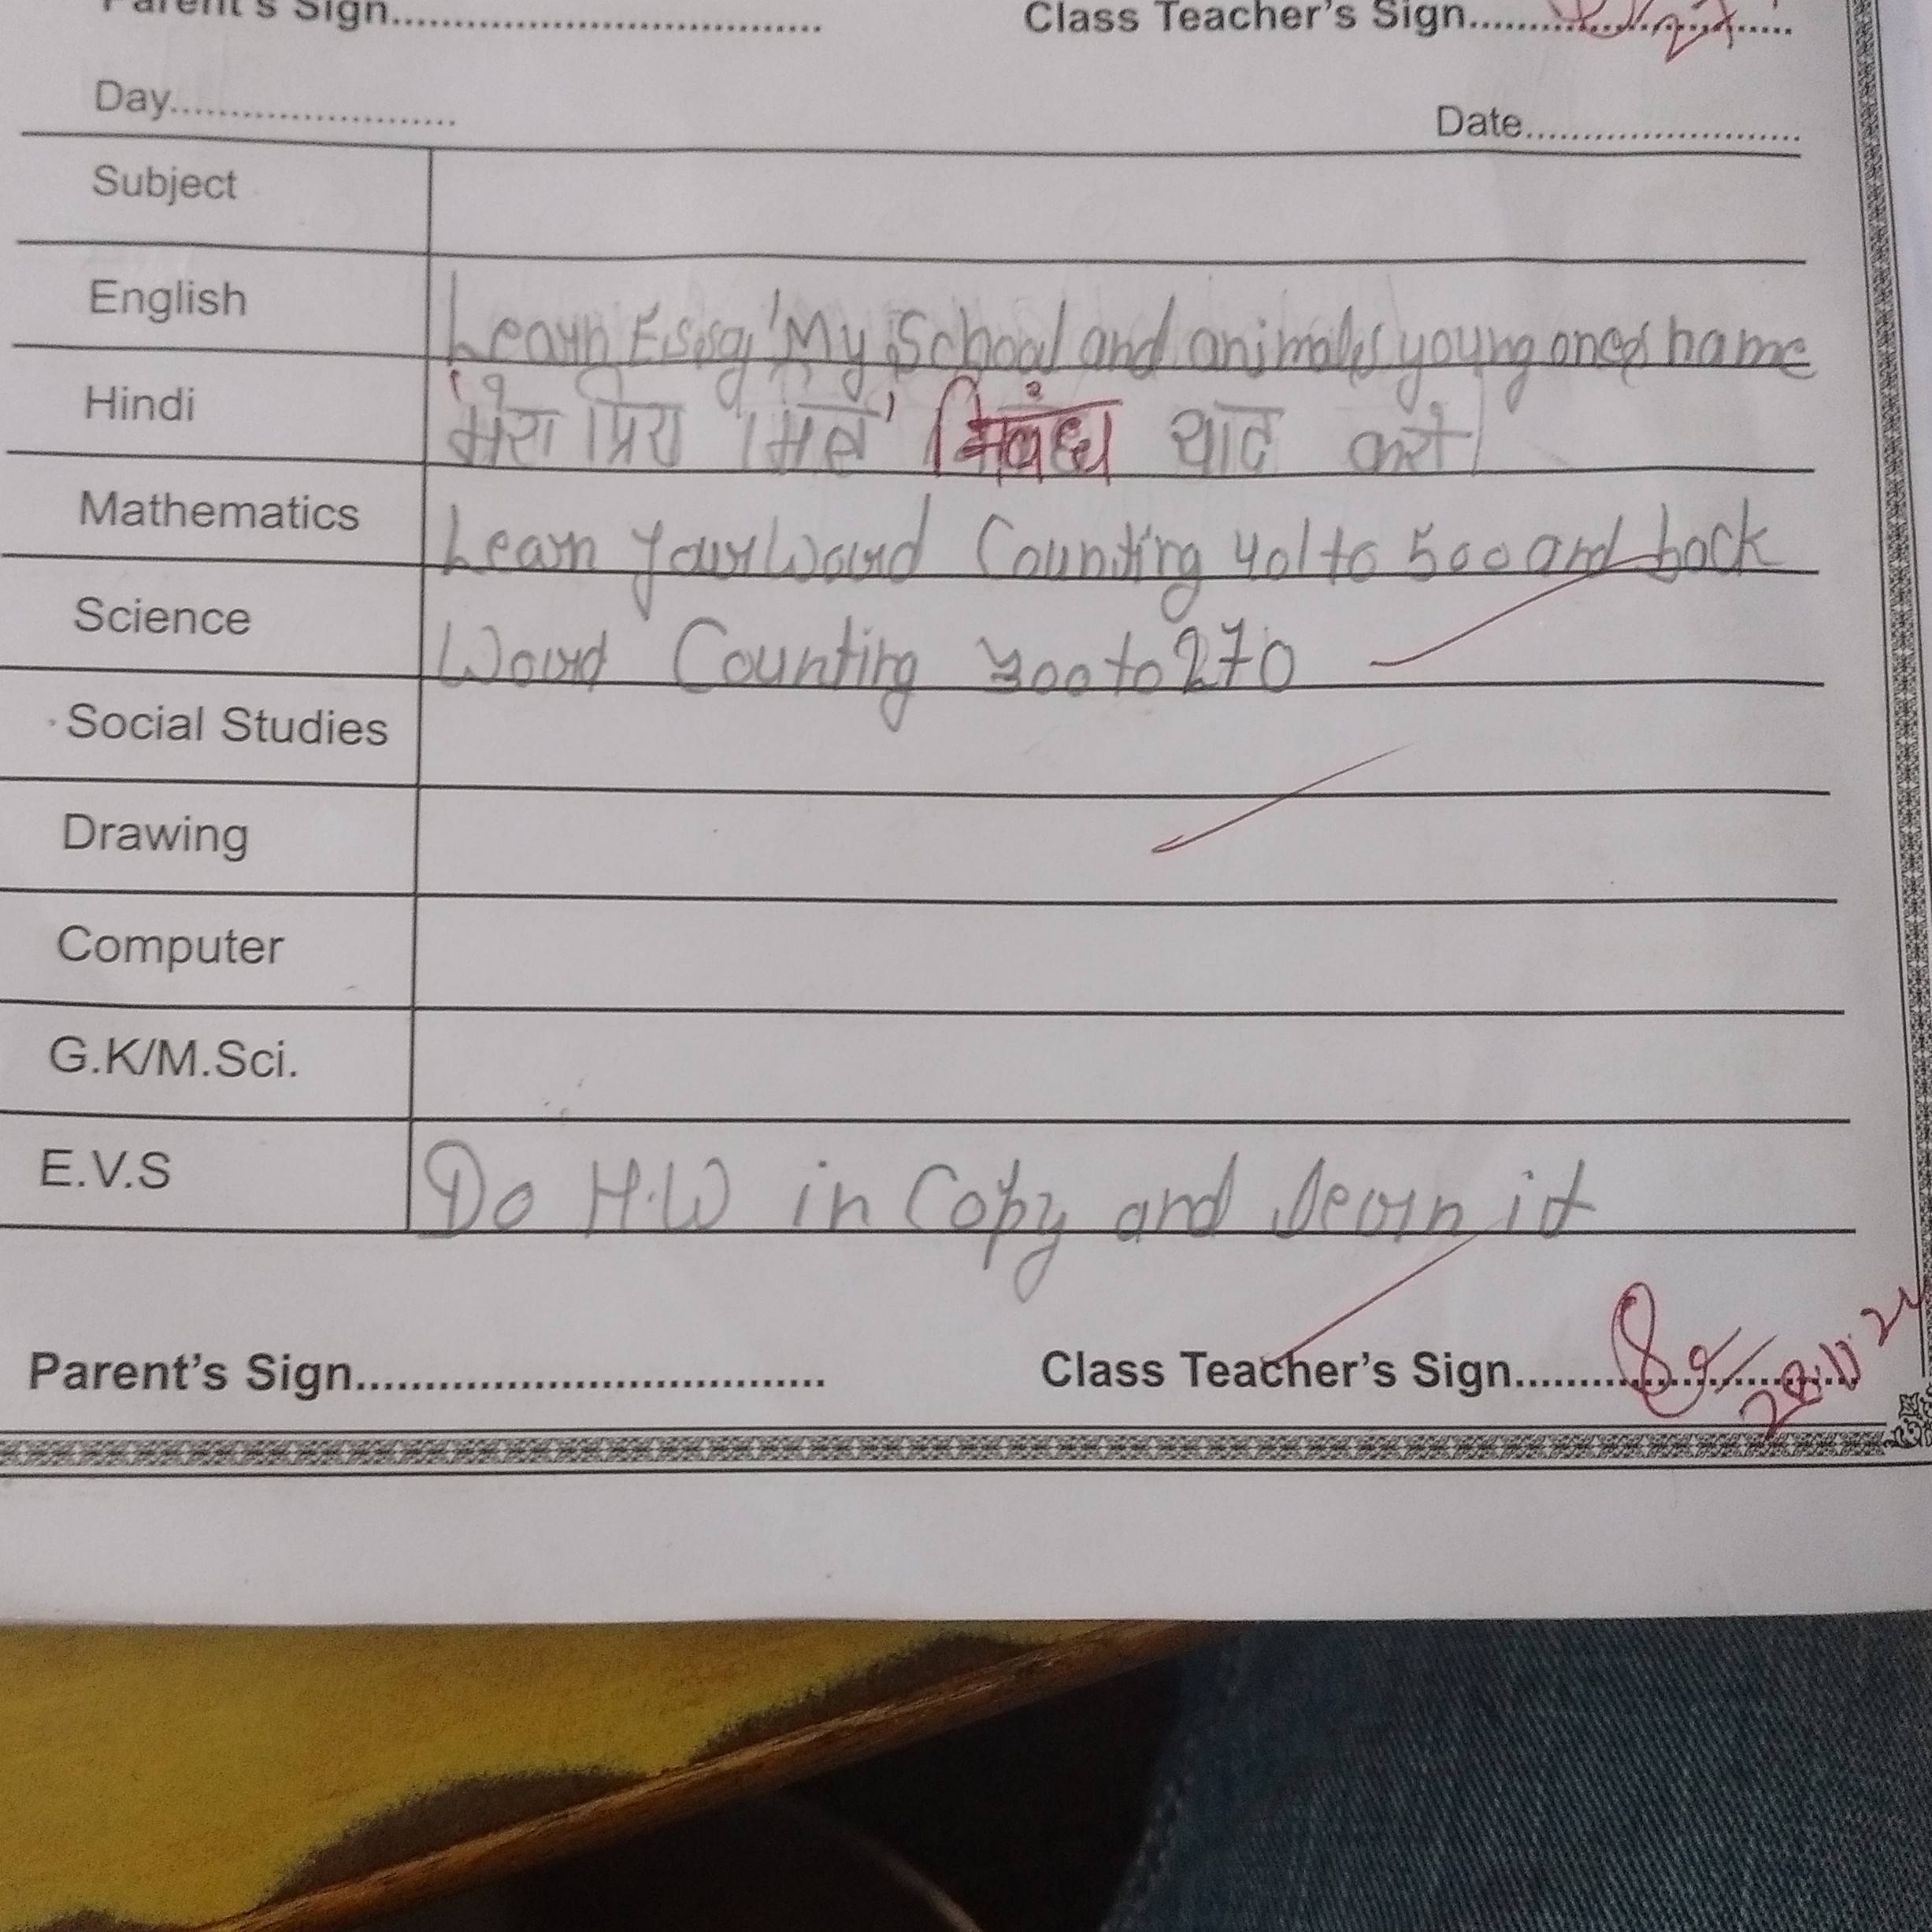 Parent's Sign.......................................
Class Teacher's Sign..............................
Day..........................
Date..........................
Subject
English Learn Essay 'My School and animales young ones name
Hindi 'मेरा प्रिय मित्र' निबंध याद करो।
Mathematics Learn Yourword Counting 401 to 500 and back
Science Word Counting 300 to 270
Social Studies
Drawing
Computer
G.K/M.Sci.
E.V.S Do H.W in Copy and learn it
Parent's Sign...................................
Class Teacher's Sign..............................
28.11.24